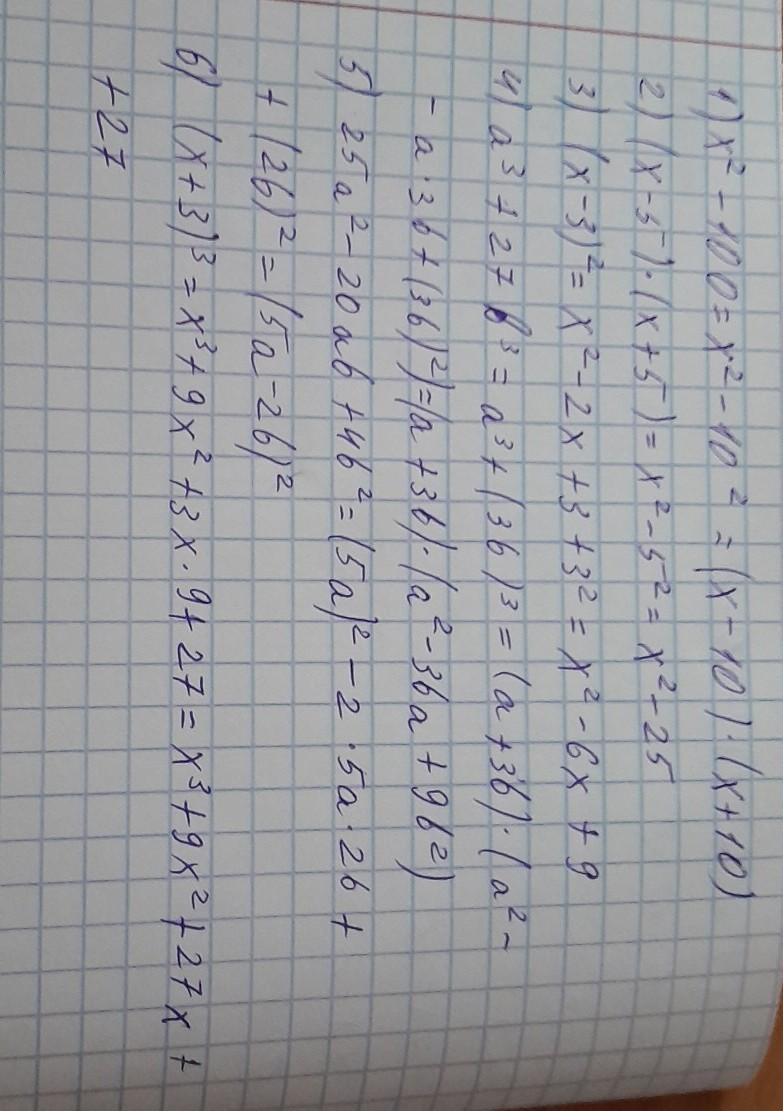 1) x² - 100 = x² - 10² = (x - 10) · (x + 10)
2) (x - 5) · (x + 5) = x² - 5² = x² - 25
3) (x - 3)² = x² - 2x + 3 + 3² = x² - 6x + 9
4) a³ + 27b³ = a³ + (3b)³ = (a + 3b) · (a² -
- a · 3b + (3b)²) = (a + 3b) · (a² - 3ba + 9b²)
5) 25a² - 20ab + 4b² = (5a)² - 2 · 5a · 2b +
+ (2b)² = (5a - 2b)²
6) (x + 3)³ = x³ + 9x² + 3x · 9 + 27 = x³ + 9x² + 27x +
+ 27